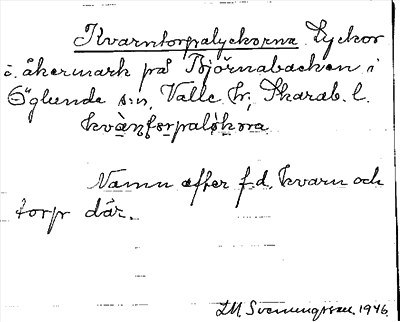 Kvarntorpalyckorna Lyckor
i åkermark på Björnabacken i
Öglunda s:n, Valle hr, Skarab. l.
kvànforpalökora
Namn efter f.d. kvarn och
torp där.
I.M. Svenungsson. 1946.